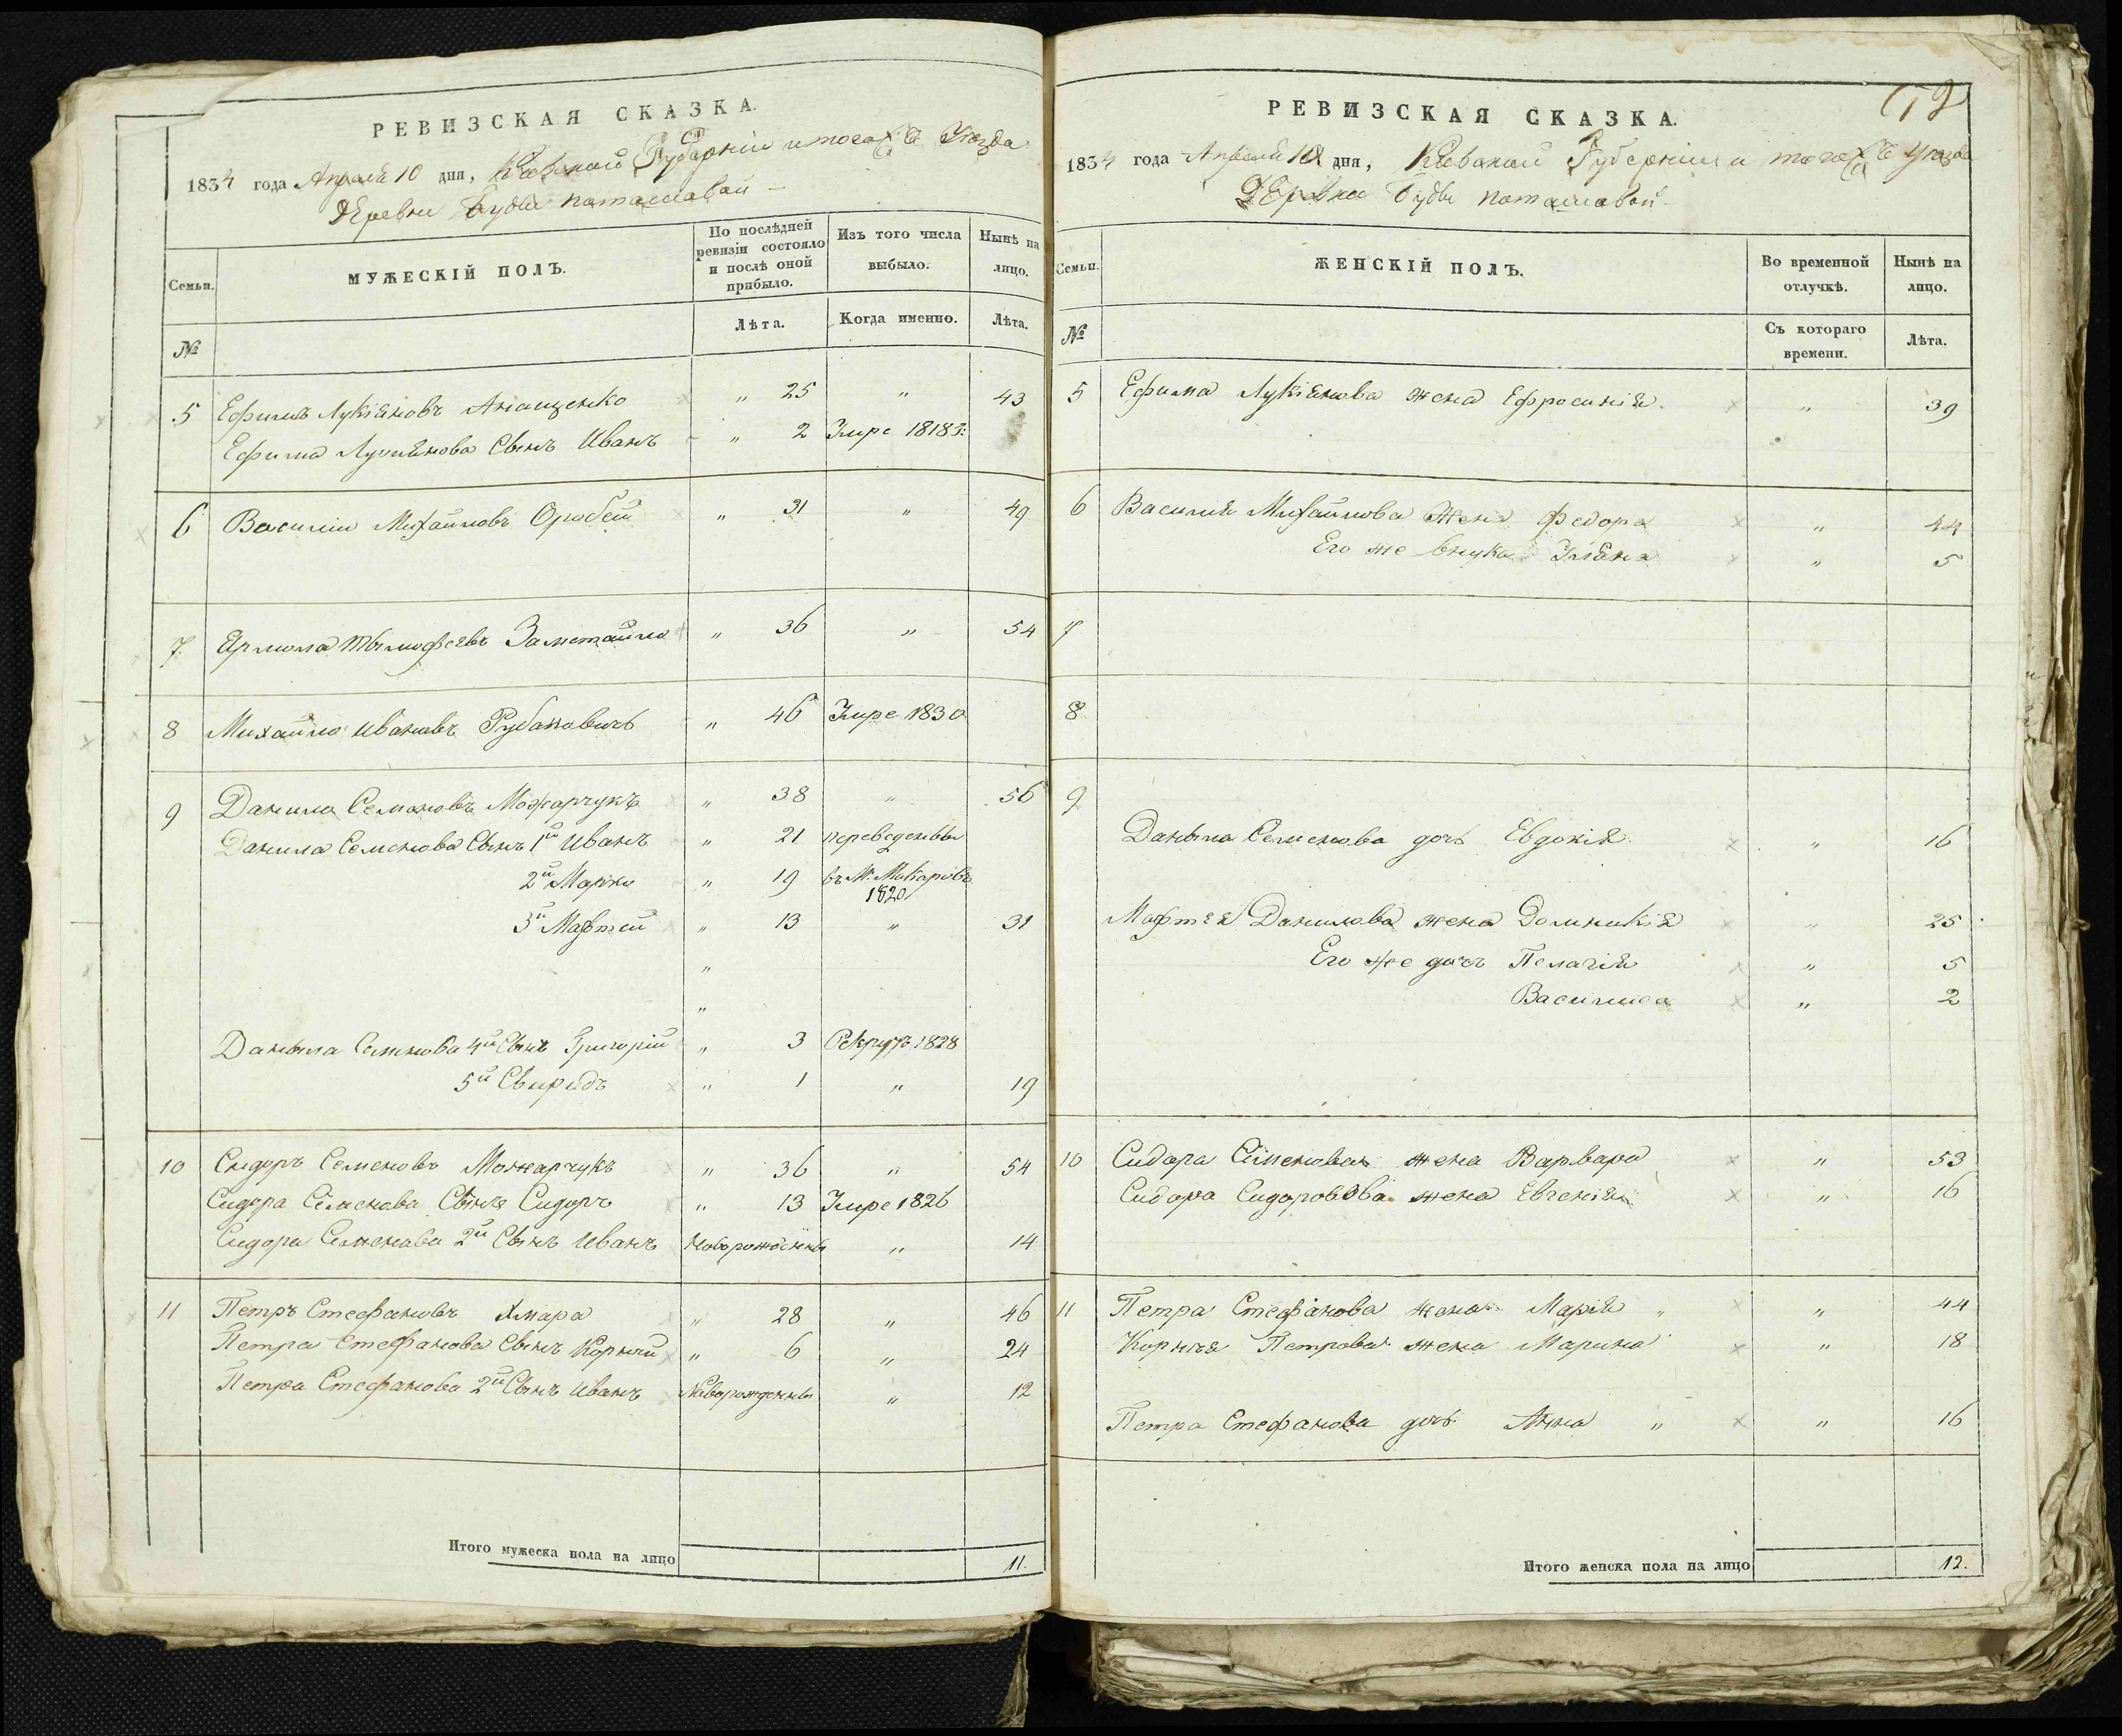 РЕВИЗСКАЯ СКАЗКА.
1834 года Апреля 10 дня, Киевской Губернии и тогожъ Уезда
Деревни Буды поташовой
Семьи.
МУЖЕСКІЙ ПОЛЪ.
По послѣдней ревизіи состояло и послѣ оной прибыло.
Изъ того числа выбыло.
Нынѣ на лицо.
№
Лѣта.
Когда именно.
Лѣта.
5 Ефимъ Лукіяновъ Анащенко „ 25 „ 43
Ефима Лукіянова Сынъ Иванъ „ 2 Умре 1818
6 Василій Михайловъ Оробей „ 31 „ 49
7 Ярмола Тымофеевъ Заметайло „ 36 „ 54
8 Михайло Ивановъ Рубановичъ „ 46 Умре 1830
9 Данила Семеновъ Можарчукъ „ 38 „ 56
Данила Семенова Сынъ 1й Иванъ „ 21 переведены
2й Марко „ 19 въ М. Макаровъ
1820
3й Мафтей „ 13 „ 31
„
„
Даныла Семенова 4й Сынъ Григорій „ 3 Рекрутъ 1828
5й Свиридъ „ 1 „ 19
10 Сидоръ Семеновъ Можарчукъ „ 36 „ 54
Сидора Семенова Сынъ Сидоръ „ 13 Умре 1826
Сидора Семенова 2й Сынъ Иванъ Новорожденны „ 14
11 Петръ Стефановъ Хмара „ 28 „ 46
Петра Стефанова Сынъ Корній „ 6 „ 24
Петра Стефанова 2й Сынъ Иванъ Новорожденны „ 12
Итого мужеска пола на лицо 11.
РЕВИЗСКАЯ СКАЗКА.
1834 года Апреля 10 дня, Киевской Губерніи и тогожъ Уезда
Деревни Буды поташовой
Семьи.
ЖЕНСКІЙ ПОЛЪ.
Во временной отлучкѣ.
Нынѣ на лицо.
№
Съ котораго времени.
Лѣта.
5 Ефима Лукіянова жена Ефросинія „ 39
6 Василия Михайлова Жена Федора „ 44
Его же внука Уліяна „ 5
7
8
9
Даныла Семенова дочь Евдокія „ 16
Мафтея Данилова жена Домникія „ 25
Его же дочь Пелагія „ 5
Василиса „ 2
10 Сидора Семенова жена Варвара „ 53
Сидора Сидорова жена Евгенія „ 16
11 Петра Стефанова жена Марія „ „ 44
Корнея Петрова жена Марина „ 18
Петра Стефанова дочь Анна „ „ 16
Итого женска пола на лицо 12.